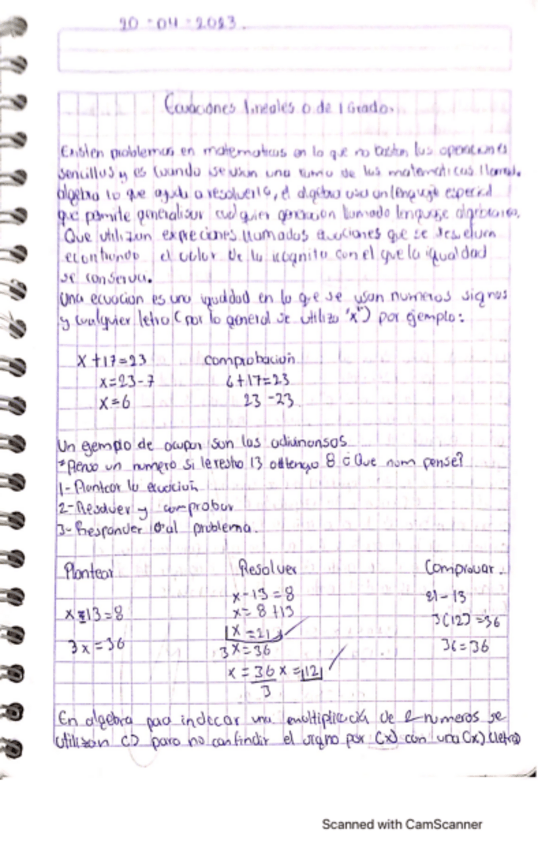 20-04-2023.
Ecuaciones lineales o de 1 Grado.
Existen problemas en matematicas en lo que no bastan las operaciones
sencillas y es cuando se usan una rama de las matematicas llamada
algebra lo que ayuda a resolverla, el algebra usa un lenguaje especial
que permite generalisar cualquier llamado lenguaje algebraico.
Que utilizan expreciones llamadas ecuciones que se resuelven
econtrando el valor de la icognita con el que la igualdad
se conserva.
Una ecuacion es una igualdad en la que se usan numeros signos
y cualquier letra (por lo general se utiliza "x") por ejemplo:
x+17=23 comprobacion
x=23-7 6+17=23
x=6 23-23
Un ejemplo de ocupar son las
*Pienso un numero si le resto 13 obtengo 8 ¿Que num pense?
1-Plantear la ecuacion
2-Resolver y comprobar
3-Responder al problema.
Plantear Resolver Comprovar.
x-13=8 21-13
x-13=8 x=8+13 3(12)=36
x=21
3x=36 3x=36 36=36
x=36 x=12
3
En algebra para indecar una multiplicacion de 2 numeros se
utilizan () para no confindir el signo por (x) con una (x) (letra)
Scanned with CamScanner